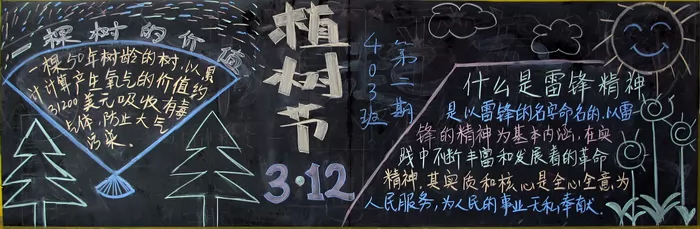 一棵树的价值
一棵50年树龄的树，以累
计计算产生氧气的价值约
31200美元吸收有毒
气体，防止大气
污染。
植树节
3·12
第二期
403班
什么是雷锋精神
是以雷锋的名字命名的，以雷
锋的精神为基本内涵，在实
践中不断丰富和发展着的革命
精神，其实质和核心是全心全意为
人民服务，为人民的事业无私奉献.